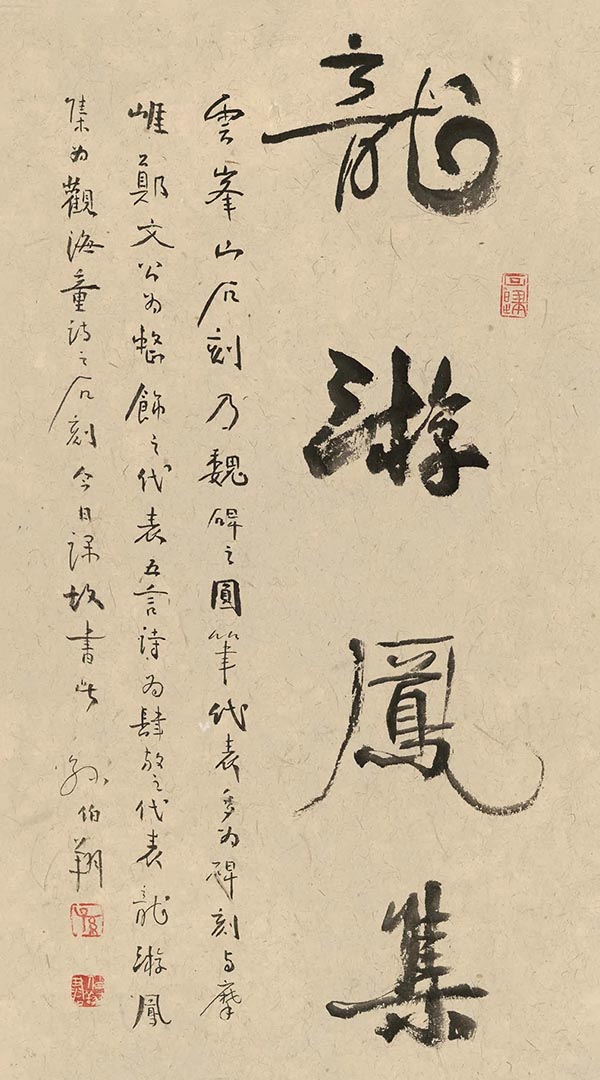 龍游鳳集
雲峯山石刻乃魏碑之圓筆代表多为碑刻与摩
崖鄭文公为整飾之代表五言詩为肆放之代表龍游鳳
集为觀海童詩之石刻今日課故書此 孫伯翔